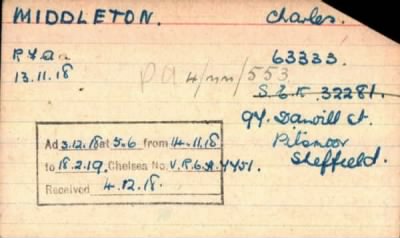 MIDDLETON. Charles.
R F A 63333.
13.11.18 PA 4/nn/553
S.E.K 32281.
94. Danvill st.
Pitsmoor
Sheffield.
Ad 3.12.18 at 5.6 from 14.11.18
to 18.2.19. Chelsea No. V.R.6.A.4451.
Received 4.12.18.